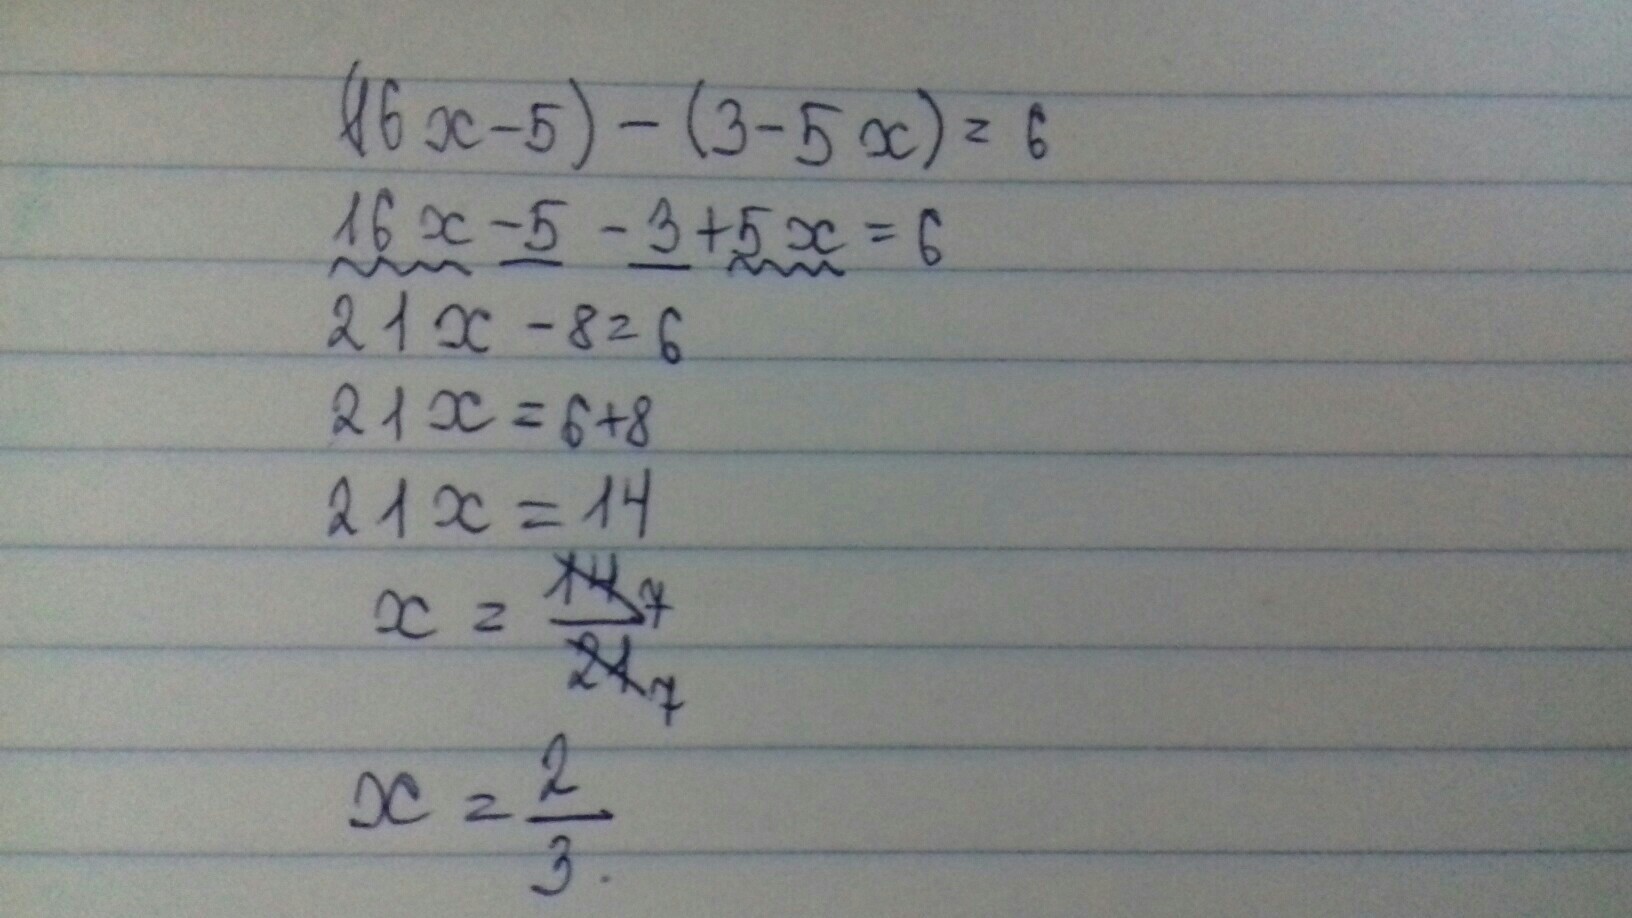 (16x-5)-(3-5x)=6
16x-5-3+5x=6
21x-8=6
21x=6+8
21x=14
x=14/21 7 7
x=2/3.